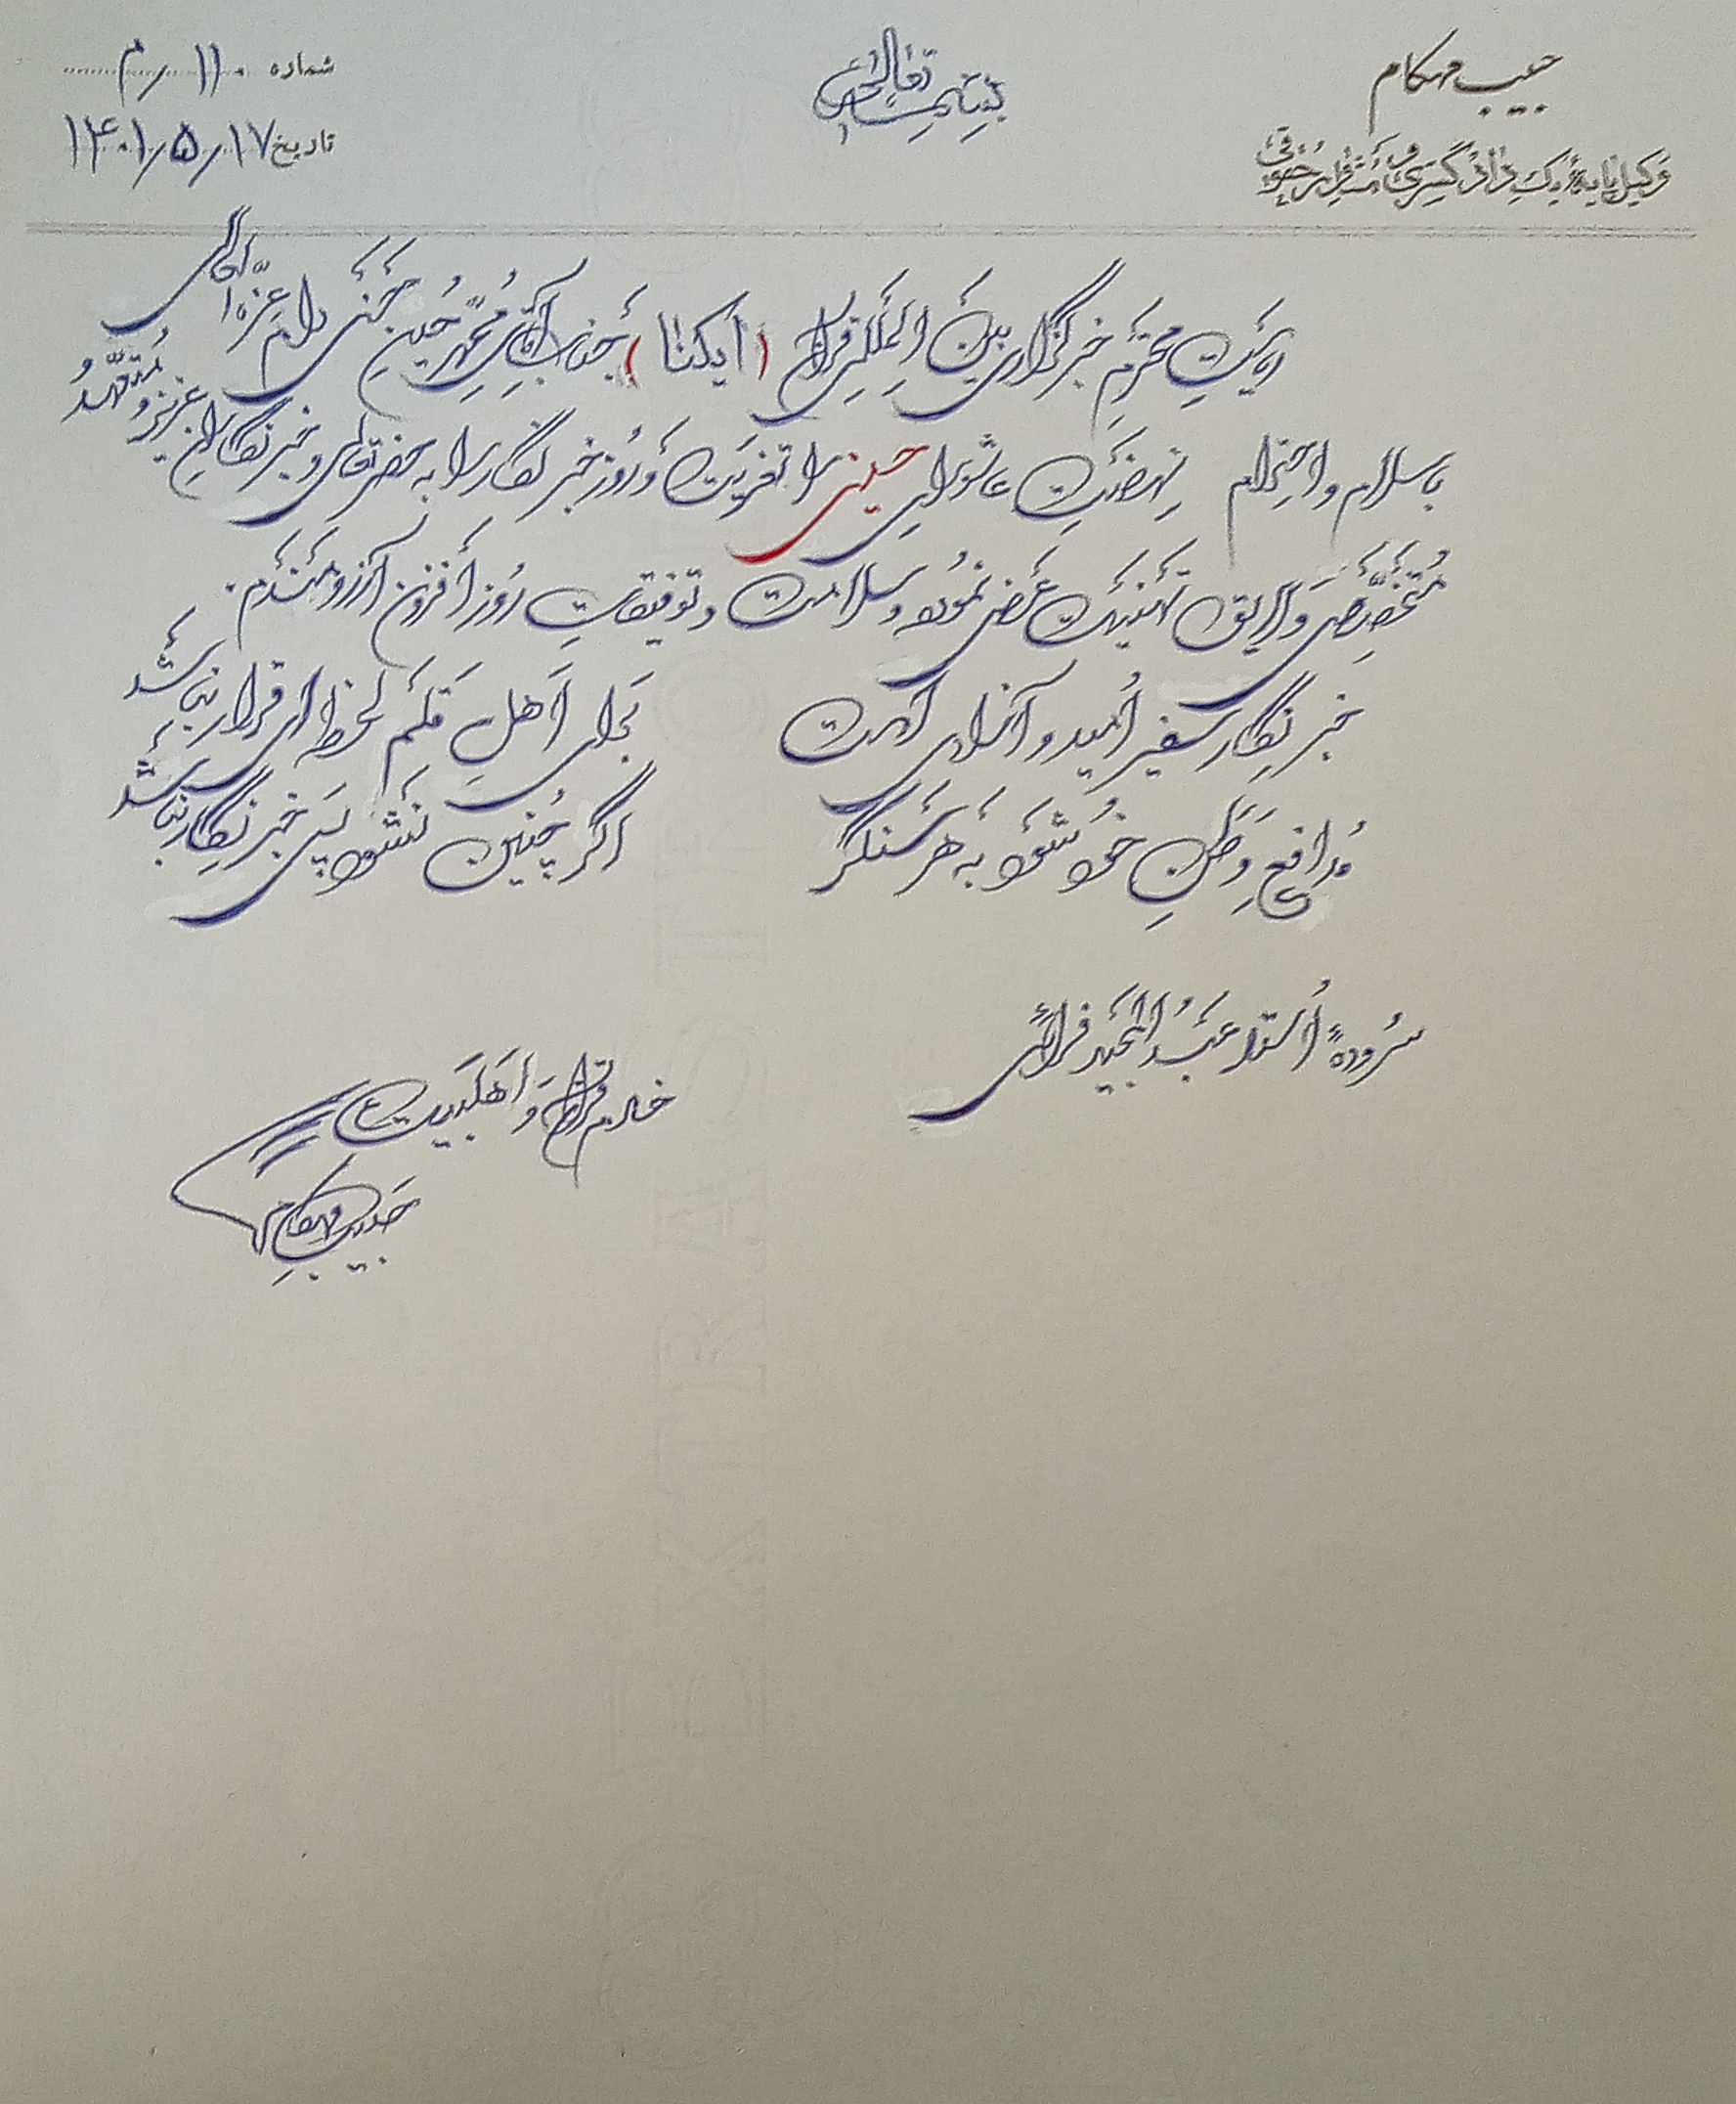 حبیب مهکام
وکیل پایه یک دادگستری و مشاور حقوقی
بسمه تعالی
شماره ۱۱۰/م
تاریخ ۱۴۰۱/۵/۱۷
ریاست محترم خبرگزاری بین المللی قرآن (ایکنا) جناب آقای محمد حسین حسنی دام عزه العالی
با سلام و احترام نهضت عاشورای حسینی را تعزیت و روز خبرنگار را به حضرتعالی و خبرنگاران عزیز و متعهد
متخصص و لایق تهنیت عرض نموده و سلامت و توفیقات روز افزون آرزومندم.
خبرنگار سفیر امید و آزادی است    بجای اهل قلم لحظه ای قرار نباشد
مدافع وطن خود شود به هر سنگر    اگر چنین نشود پس خبرنگار نباشد
سروده استاد عبدالمجید فرائی
خادم قرآن و اهلبیت ع
حبیب مهکام